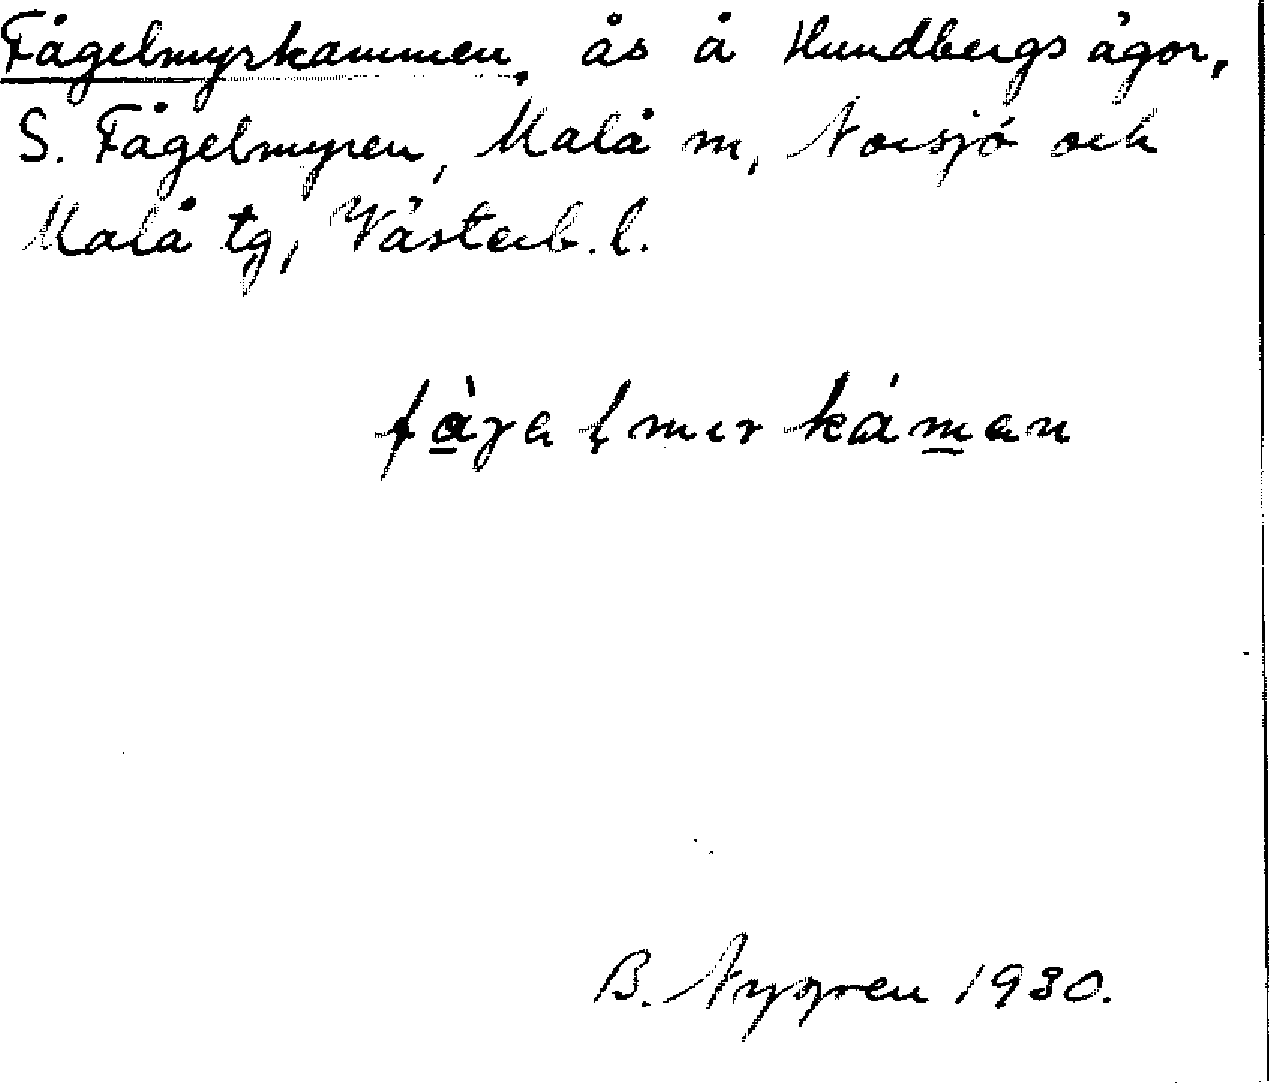 Fågelmyrkammen, ås å Hundbergs ägor,
S. Fågelmyren, Malå m, Norsjö och
Malå tg, Västerb. l.
fàgalmırkáman
B. Nygren 1930.